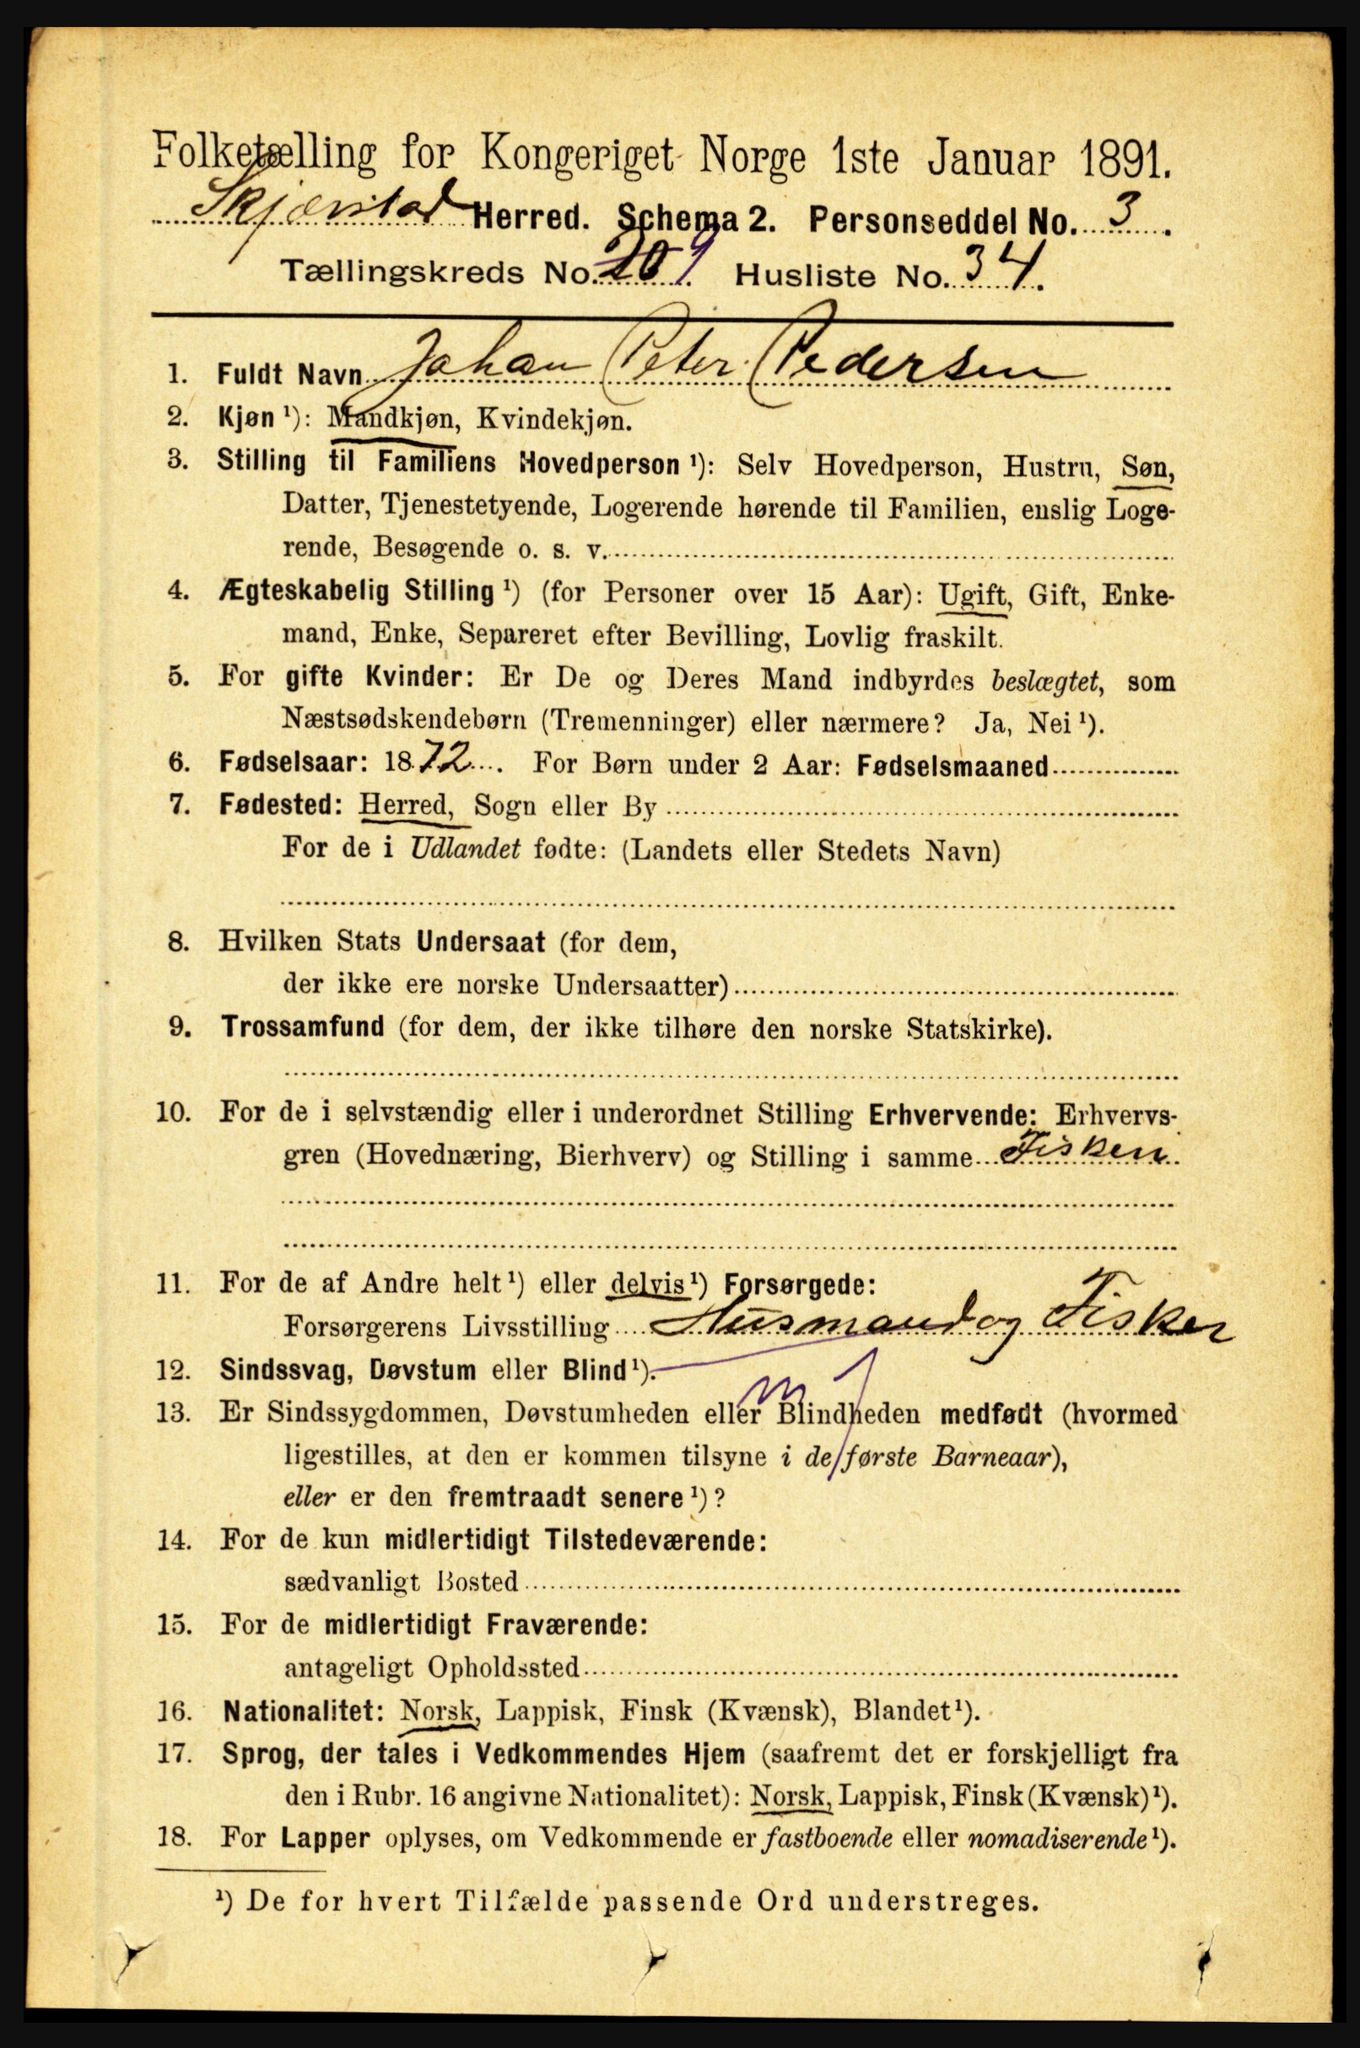 Folketælling for Kongeriget Norge 1ste Januar 1891.
Skjærstad Herred. Schema 2. Personseddel No. 3.
Tællingskreds No. 9. Husliste No. 34.
1. Fuldt Navn Johan Peter Pedersen
2. Kjøn ¹): Mandkjøn, Kvindekjøn.
3. Stilling til Familiens Hovedperson ¹): Selv Hovedperson, Hustru, Søn,
Datter, Tjenestetyende, Logerende hørende til Familien, enslig Loge-
rende, Besøgende o. s. v.
4. Ægteskabelig Stilling ¹) (for Personer over 15 Aar): Ugift, Gift, Enke-
mand, Enke, Separeret efter Bevilling, Lovlig fraskilt.
5. For gifte Kvinder: Er De og Deres Mand indbyrdes beslægtet, som
Næstsødskendebørn (Tremenninger) eller nærmere? Ja, Nei ¹).
6. Fødselsaar: 1872. For Børn under 2 Aar: Fødselsmaaned
7. Fødested: Herred, Sogn eller By
For de i Udlandet fødte: (Landets eller Stedets Navn)
8. Hvilken Stats Undersaat (for dem,
der ikke ere norske Undersaatter)
9. Trossamfund (for dem, der ikke tilhøre den norske Statskirke).
10. For de i selvstændig eller i underordnet Stilling Erhvervende: Erhvervs-
gren (Hovednæring, Bierhverv) og Stilling i samme Fisken
11. For de af Andre helt ¹) eller delvis ¹) Forsørgede:
Forsørgerens Livsstilling Husmand og Fisker
12. Sindssvag, Døvstum eller Blind ¹).
13. Er Sindssygdommen, Døvstumheden eller Blindheden medfødt (hvormed
ligestilles, at den er kommen tilsyne i de første Barneaar),
eller er den fremtraadt senere ¹)?
14. For de kun midlertidigt Tilstedeværende:
sædvanligt Bosted
15. For de midlertidigt Fraværende:
antageligt Opholdssted
16. Nationalitet: Norsk, Lappisk, Finsk (Kvænsk), Blandet ¹).
17. Sprog, der tales i Vedkommendes Hjem (saafremt det er forskjelligt fra
den i Rubr. 16 angivne Nationalitet): Norsk, Lappisk, Finsk (Kvænsk) ¹).
18. For Lapper oplyses, om Vedkommende er fastboende eller nomadiserende ¹).
¹) De for hvert Tilfælde passende Ord understreges.